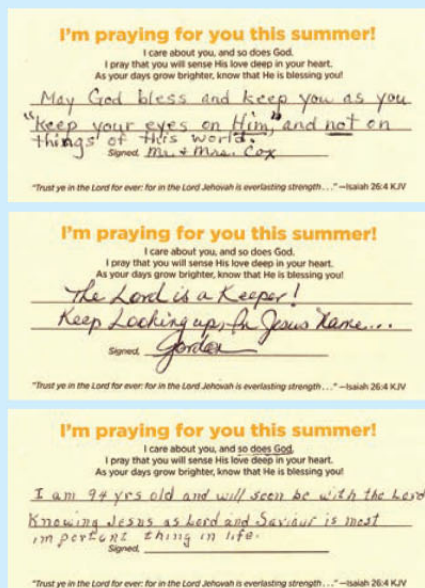 I'm praying for you this summer!
I care about you, and so does God.
I pray that you will sense His love deep in your heart.
As your days grow brighter, know that He is blessing you!
May God bless and keep you as you
"keep your eyes on Him," and not on
things of this world.
Signed, Mr. & Mrs. Cox
"Trust ye in the Lord for ever: for in the Lord Jehovah is everlasting strength . . ." —Isaiah 26:4 KJV
I'm praying for you this summer!
I care about you, and so does God.
I pray that you will sense His love deep in your heart.
As your days grow brighter, know that He is blessing you!
The Lord is a Keeper!
Keep Looking up, In Jesus Name...
Signed, Gordon
"Trust ye in the Lord for ever: for in the Lord Jehovah is everlasting strength . . ." —Isaiah 26:4 KJV
I'm praying for you this summer!
I care about you, and so does God.
I pray that you will sense His love deep in your heart.
As your days grow brighter, know that He is blessing you!
I am 94 yrs old and will soon be with the Lord
Knowing Jesus as Lord and Saviour is most
important thing in life.
Signed,
"Trust ye in the Lord for ever: for in the Lord Jehovah is everlasting strength . . ." —Isaiah 26:4 KJV